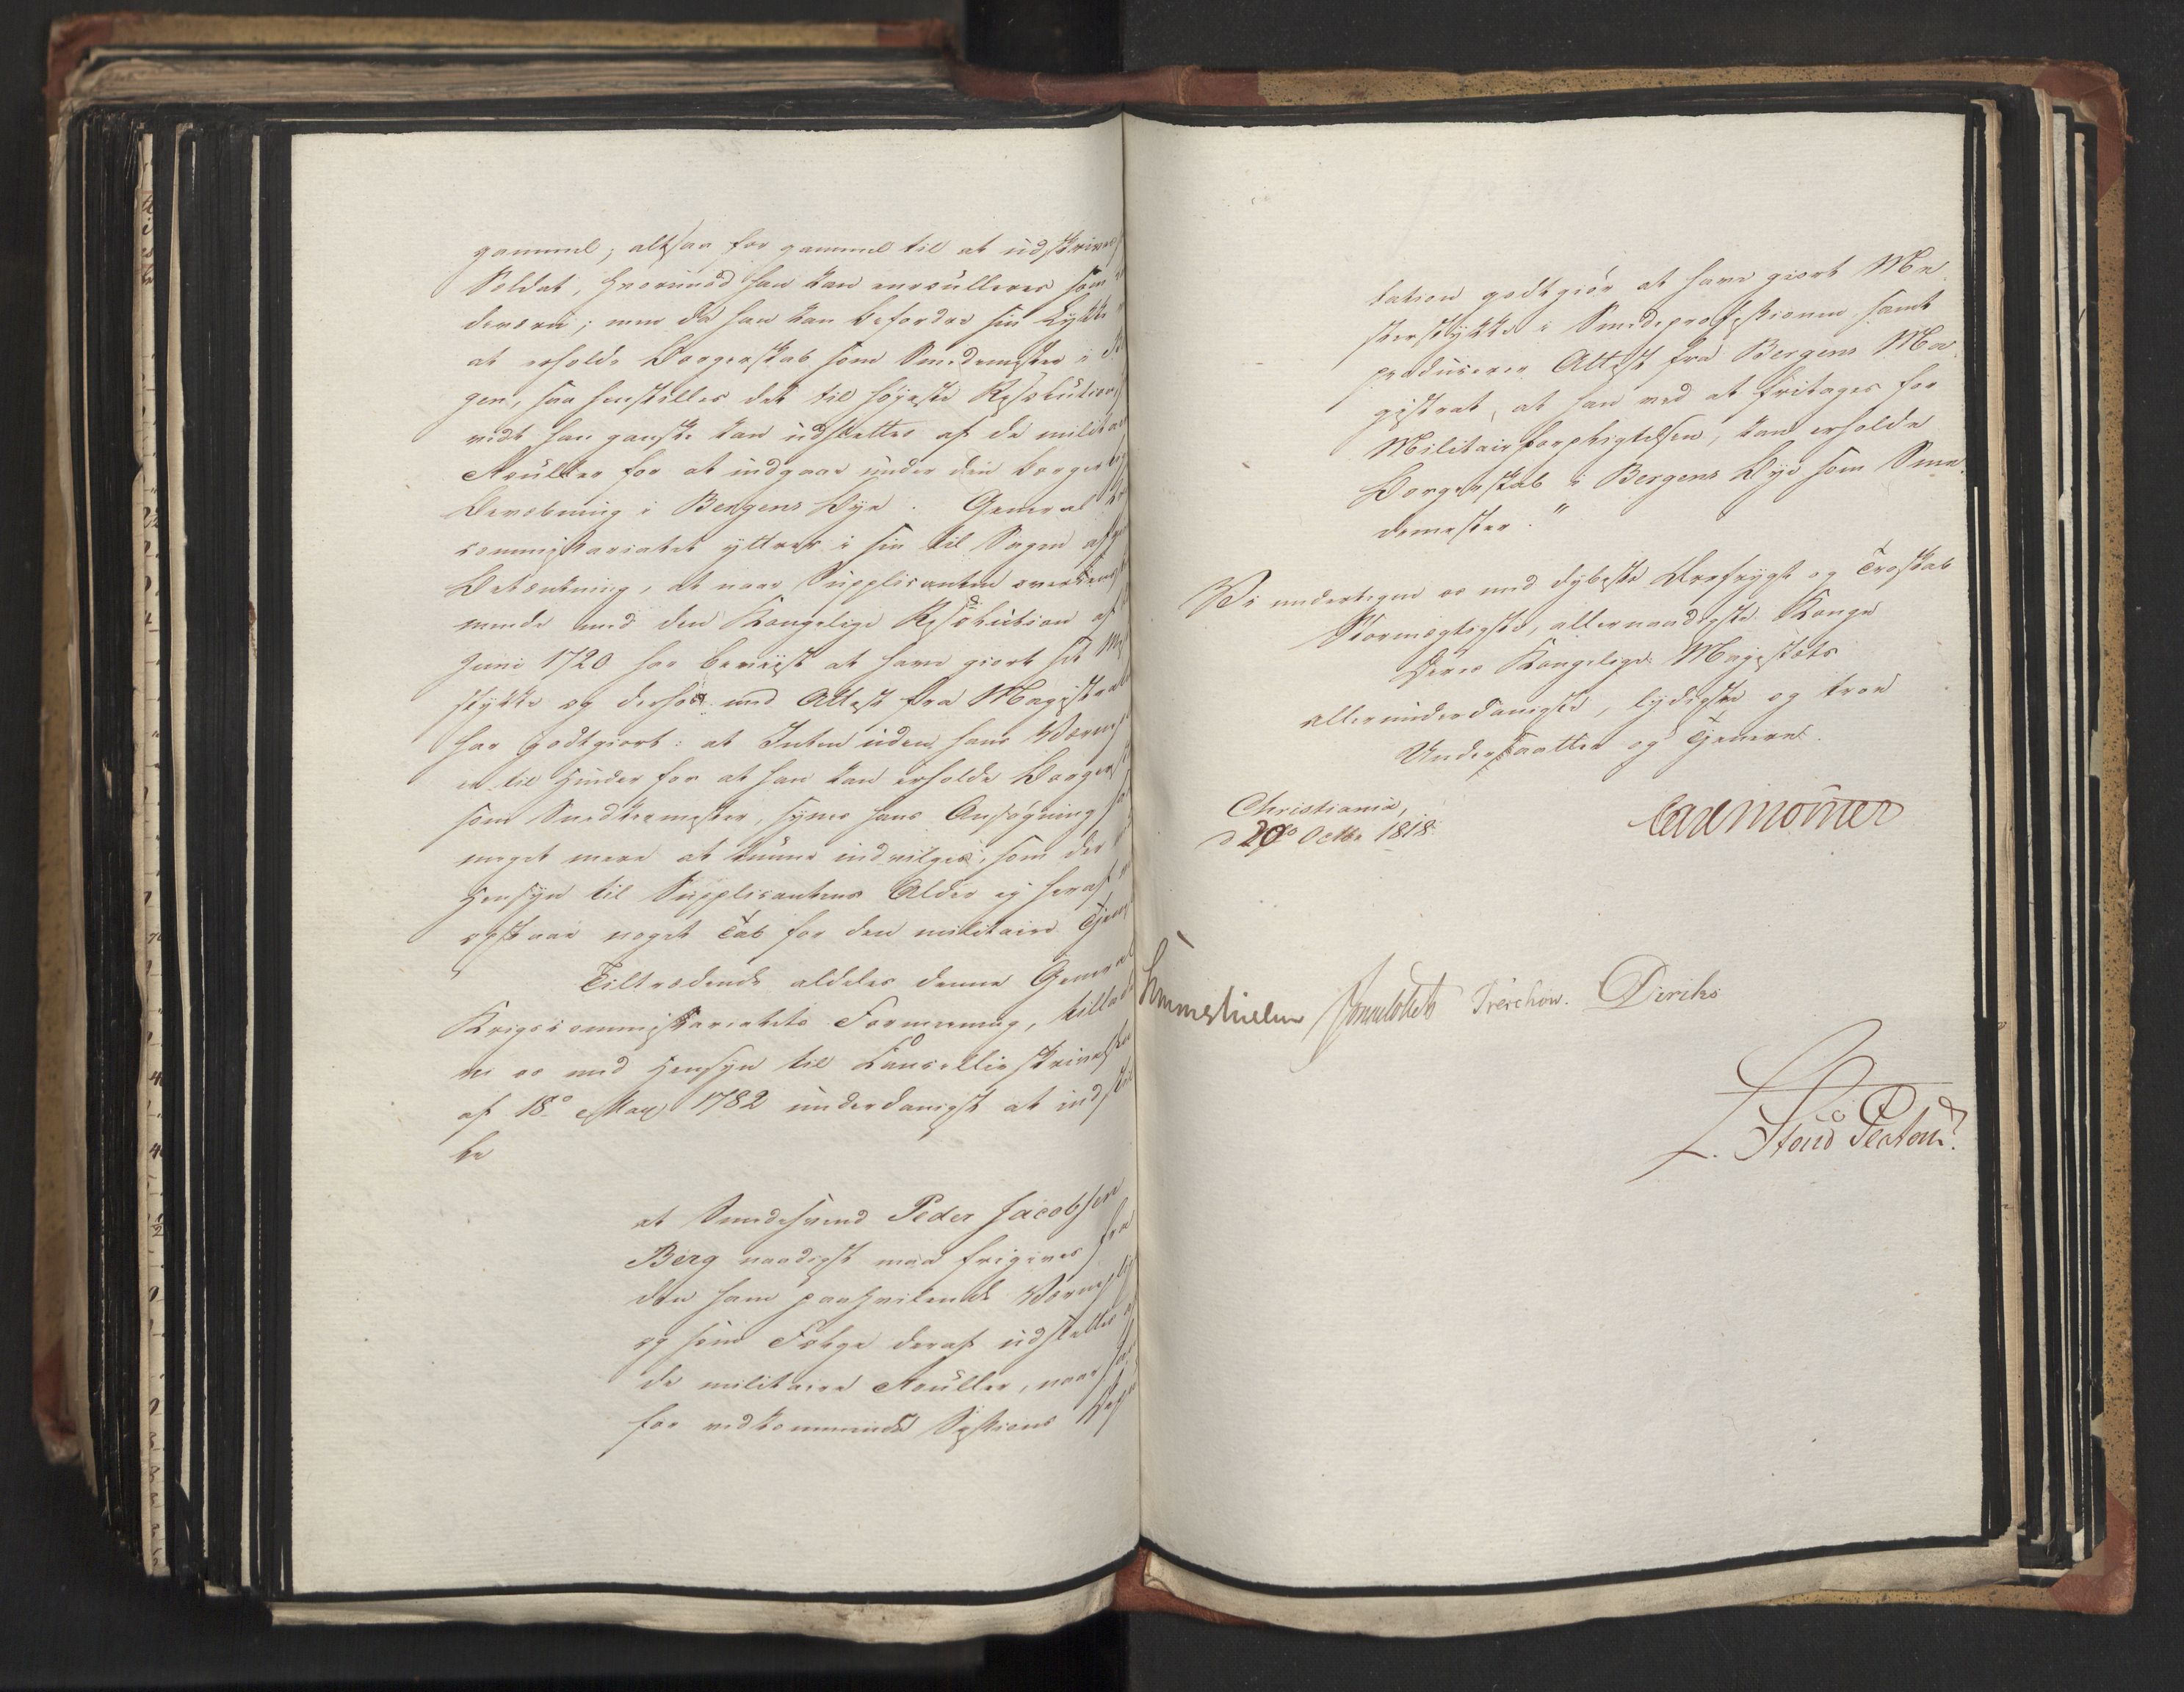 gammel; altsaa for gammel til at udskrives
Soldat, hvorimod han kan enroulleres som
; men da han kan befordre sin Lykke
at erholde Borgerskab som Smedemester i
gen, saa henstilles det til høieste Resolution
vidt han ganske kan udslettes af de militaire
Roulller for at indgaae under den borgerlige
Bevæbning i Bergens Bye. General
commissariatet yttrer i sin til Sagen
Betænkning, at naar Supplicanten overens
mende med den Kongelige Resolution af
Juni 1720 har beviist at have giort sit
stykke og derhos med Attest fra Magistraten
har godtgiort: at Intet uden hans Værne
er til Hinder for at han kan erholde Borger
som Smedemester, synes hans Ansøgning
meget mere at kunne indvilges, som der
Hensyn til Supplicantens Alder ei heraf
opstaae noget Tab for den militaire
Tiltrædende aldeles denne General
Krigscommissariatets Formening, tillade
vi os med Hensyn til Cancellieskrivelse
af 18de May 1782 underdanigst at indstil
le
at Smedesvend Peder Jacobsen
Berg naadigst maa frigives fra
den ham paahvilende Værnepligt
og som Følge deraf udslettes af
de militaire Rouller, naar han
for vedkommende Sessions
tation godtgiør at have giort Me
sterstykke i Smedeprofessionen samt
producerer Attest fra Bergens Ma
gistrat, at han ved at fritages for
Militairforpligtelsen, kan erholde
Borgerskab i Bergens Bye som Sme
demester."
Vi undertegne os med dybeste Ærefrygt og Troskab
Stormægtigste, allernaadigste Konge
Deres Kongelige Majestæts
allerunderdanigste, lydigste og troe
Undersaatter og Tjenere.
Christiania,
d 20de Octbr 1818.
Carl Mörner
Sommerhielm Treschow. Diriks